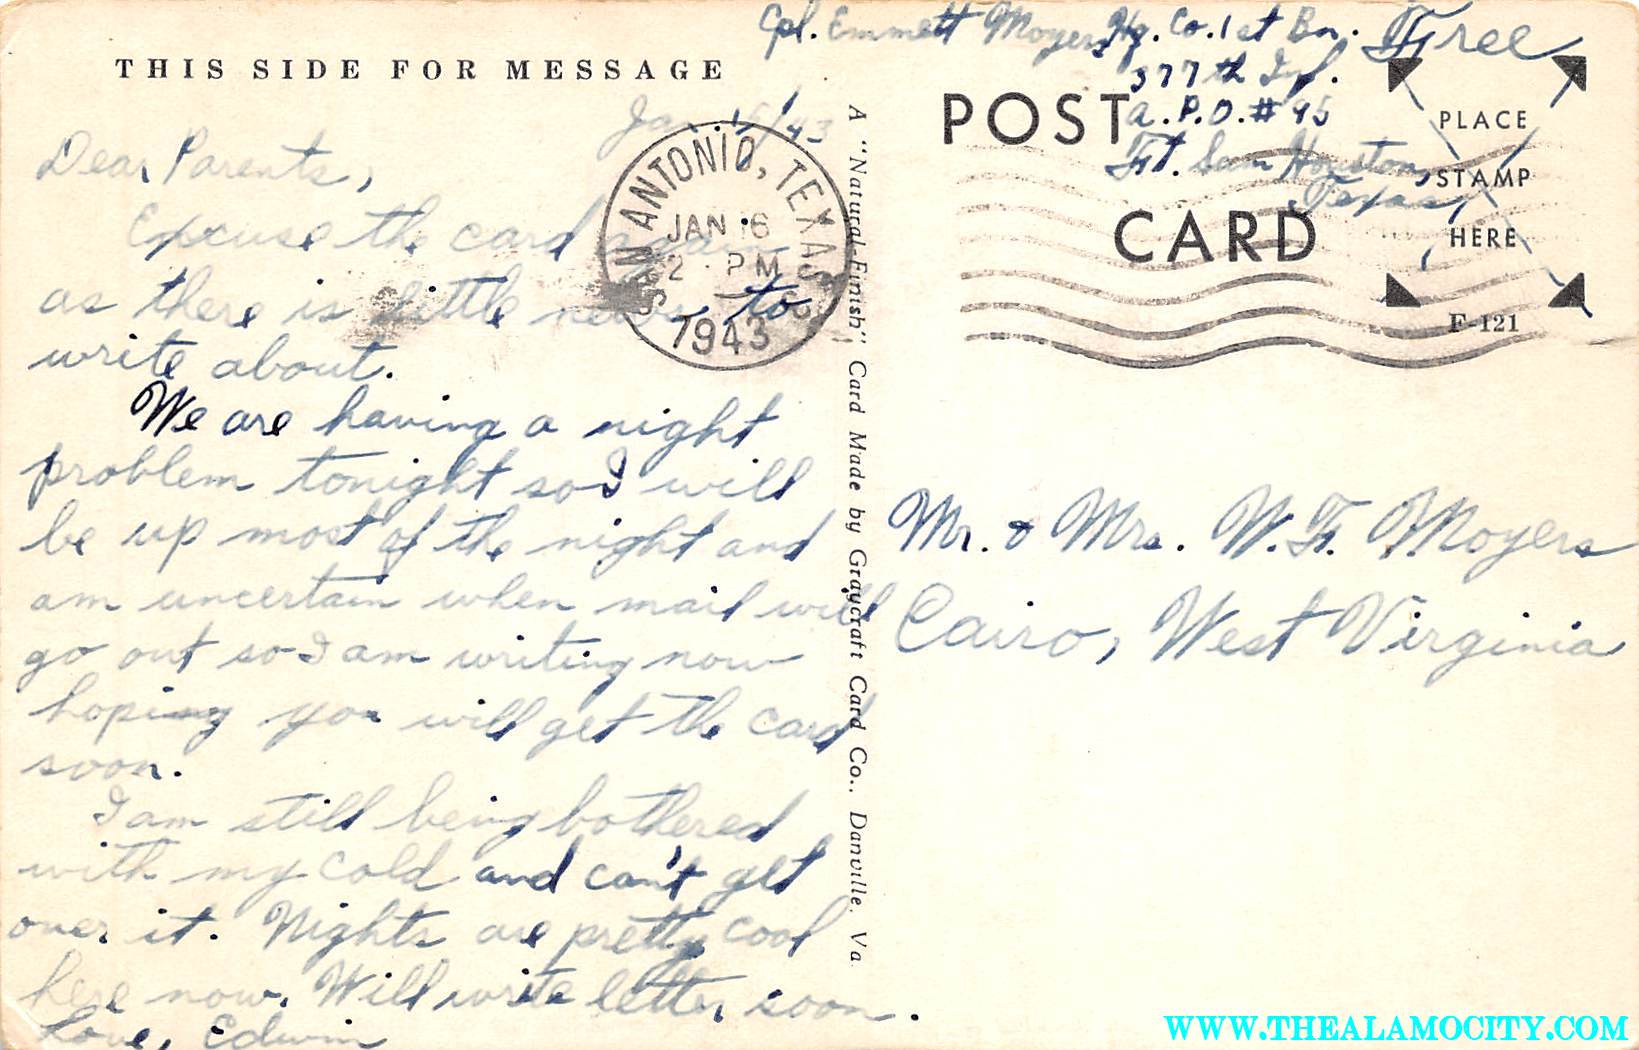 THIS SIDE FOR MESSAGE
Jan. 15/43
Dear Parents,
Excuse the card again
as there is little news to
write about.
We are having a night
problem tonight so I will
be up most of the night and
am uncertain when mail will
go out so I am writing now
hoping you will get the card
soon.
I am still being bothered
with my cold and can't get
over it. Nights are pretty cool
here now. Will write letter soon.
Love, Edwin
SAN ANTONIO, TEXAS
JAN 16
2 PM
1943
A "Natural-Finish" Card Made by Graycraft Card Co., Danville, Va.
Cpl. Emmett Moyers, Hq. Co. 1st Bn.
377th Inf.
A.P.O. # 95
Ft. Sam Houston,
Texas,
Free
POST
CARD
PLACE
STAMP
HERE
F-121
Mr. & Mrs. W. F. Moyers
Cairo, West Virginia
WWW.THEALAMOCITY.COM